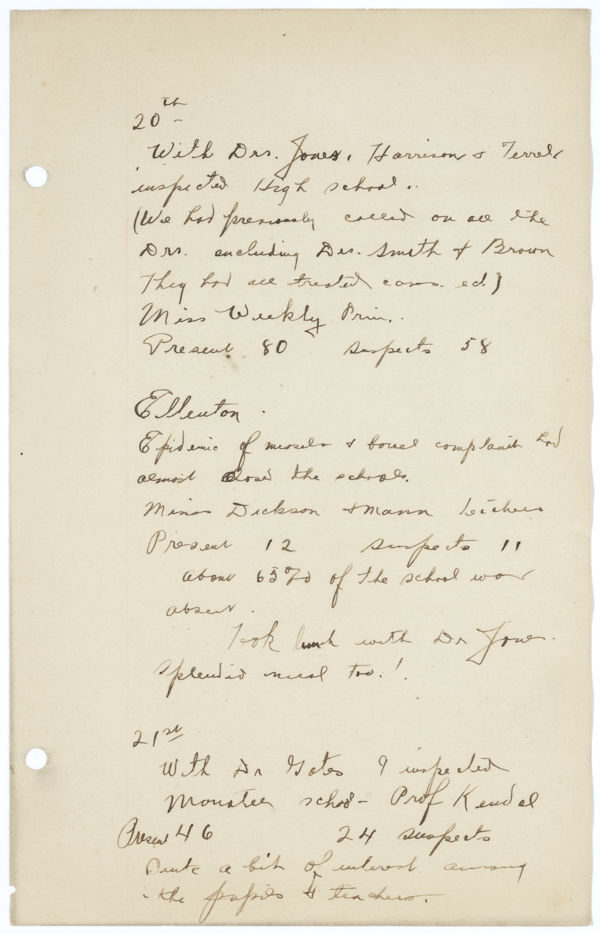 20th -
With Drs. Jones, Harrison & Terrel
inspected High school..
(We had previously called on all the
Drs. excluding Drs. Smith & Brown
They had all treated cases. ed.)
Miss Weekly Prin..
Present 80 suspects 58
Ellenton.
Epidemic of measles & bowel complaint had
almost closed the schools.
Misses Dickson & Mann teachers
Present 12 suspects 11
about 65% of the school was
absent.
Took lunch with Dr Jones.
Splendid meal too.!
21st
With Dr Gates I inspected
Manatee school - Prof Kendel
Present 46 24 suspects
Quite a bit of interest among
the pupils & teachers.